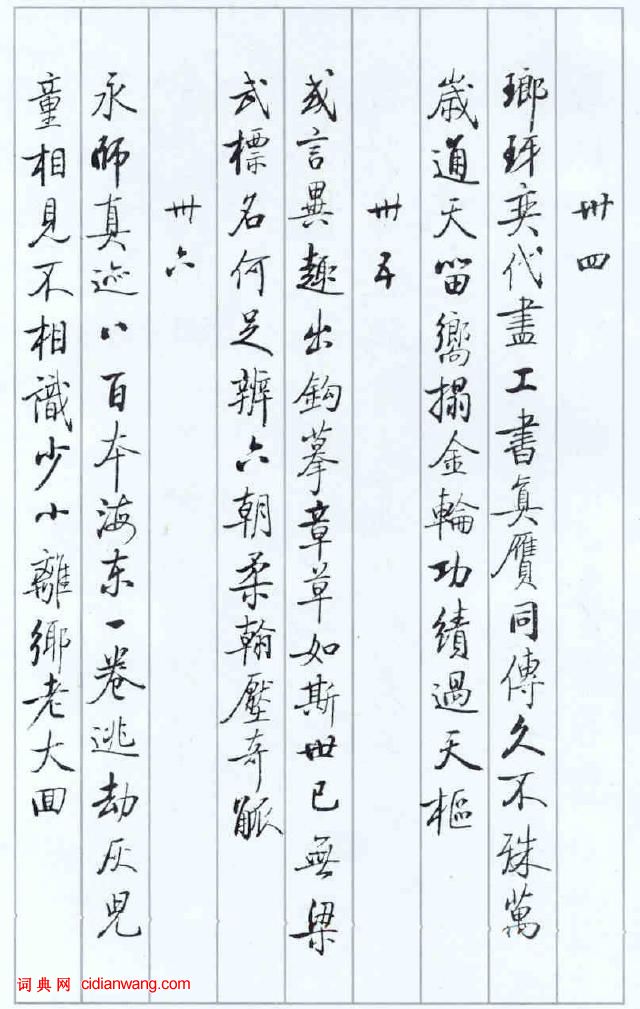 卅四
瑯玡奕代盡工書真贋同傳久不殊萬
歲通天留嚮搨金輪功績過天樞
卅五
或言異趣出鈎摹章草如斯世已無梁
武標名何足辨六朝柔翰壓奇觚
卅六
永師真迹八百本海东一卷逃劫灰兒
童相見不相識少小離鄉老大回
词典网 cidianwang.com